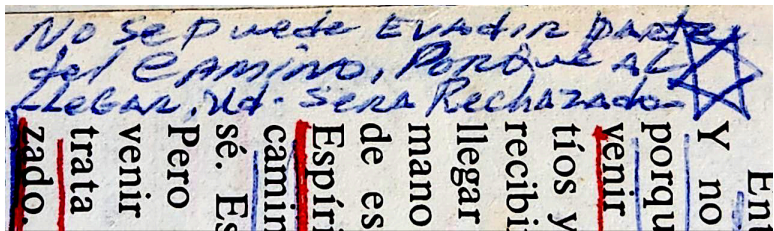 No se puede evadir parte
del camino, porque al
llegar, Ud. será rechazado
Ent
Y no
porqu
venir
tíos y
recibi
llegar
mano
de es
Espíri
camin
sé. Es
Pero
venir
trata
zado.